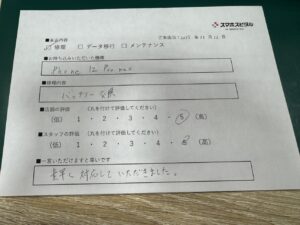 スマホスピタル
■来店内容
ご来店日: 2025 年 11 月 22 日
☑ 修理 □ データ移行 □ メンテナンス
■お持ち込みいただいた機種
iPhone 12 Pro max
■修理内容
バッテリー交換
■店舗の評価 (丸を付けて評価してください)
(低) 1 ・ 2 ・ 3 ・ 4 ・ 5 (高)
■スタッフの評価 (丸を付けて評価してください)
(低) 1 ・ 2 ・ 3 ・ 4 ・ 5 (高)
■一言いただけますと幸いです
素早く対応していただきました。